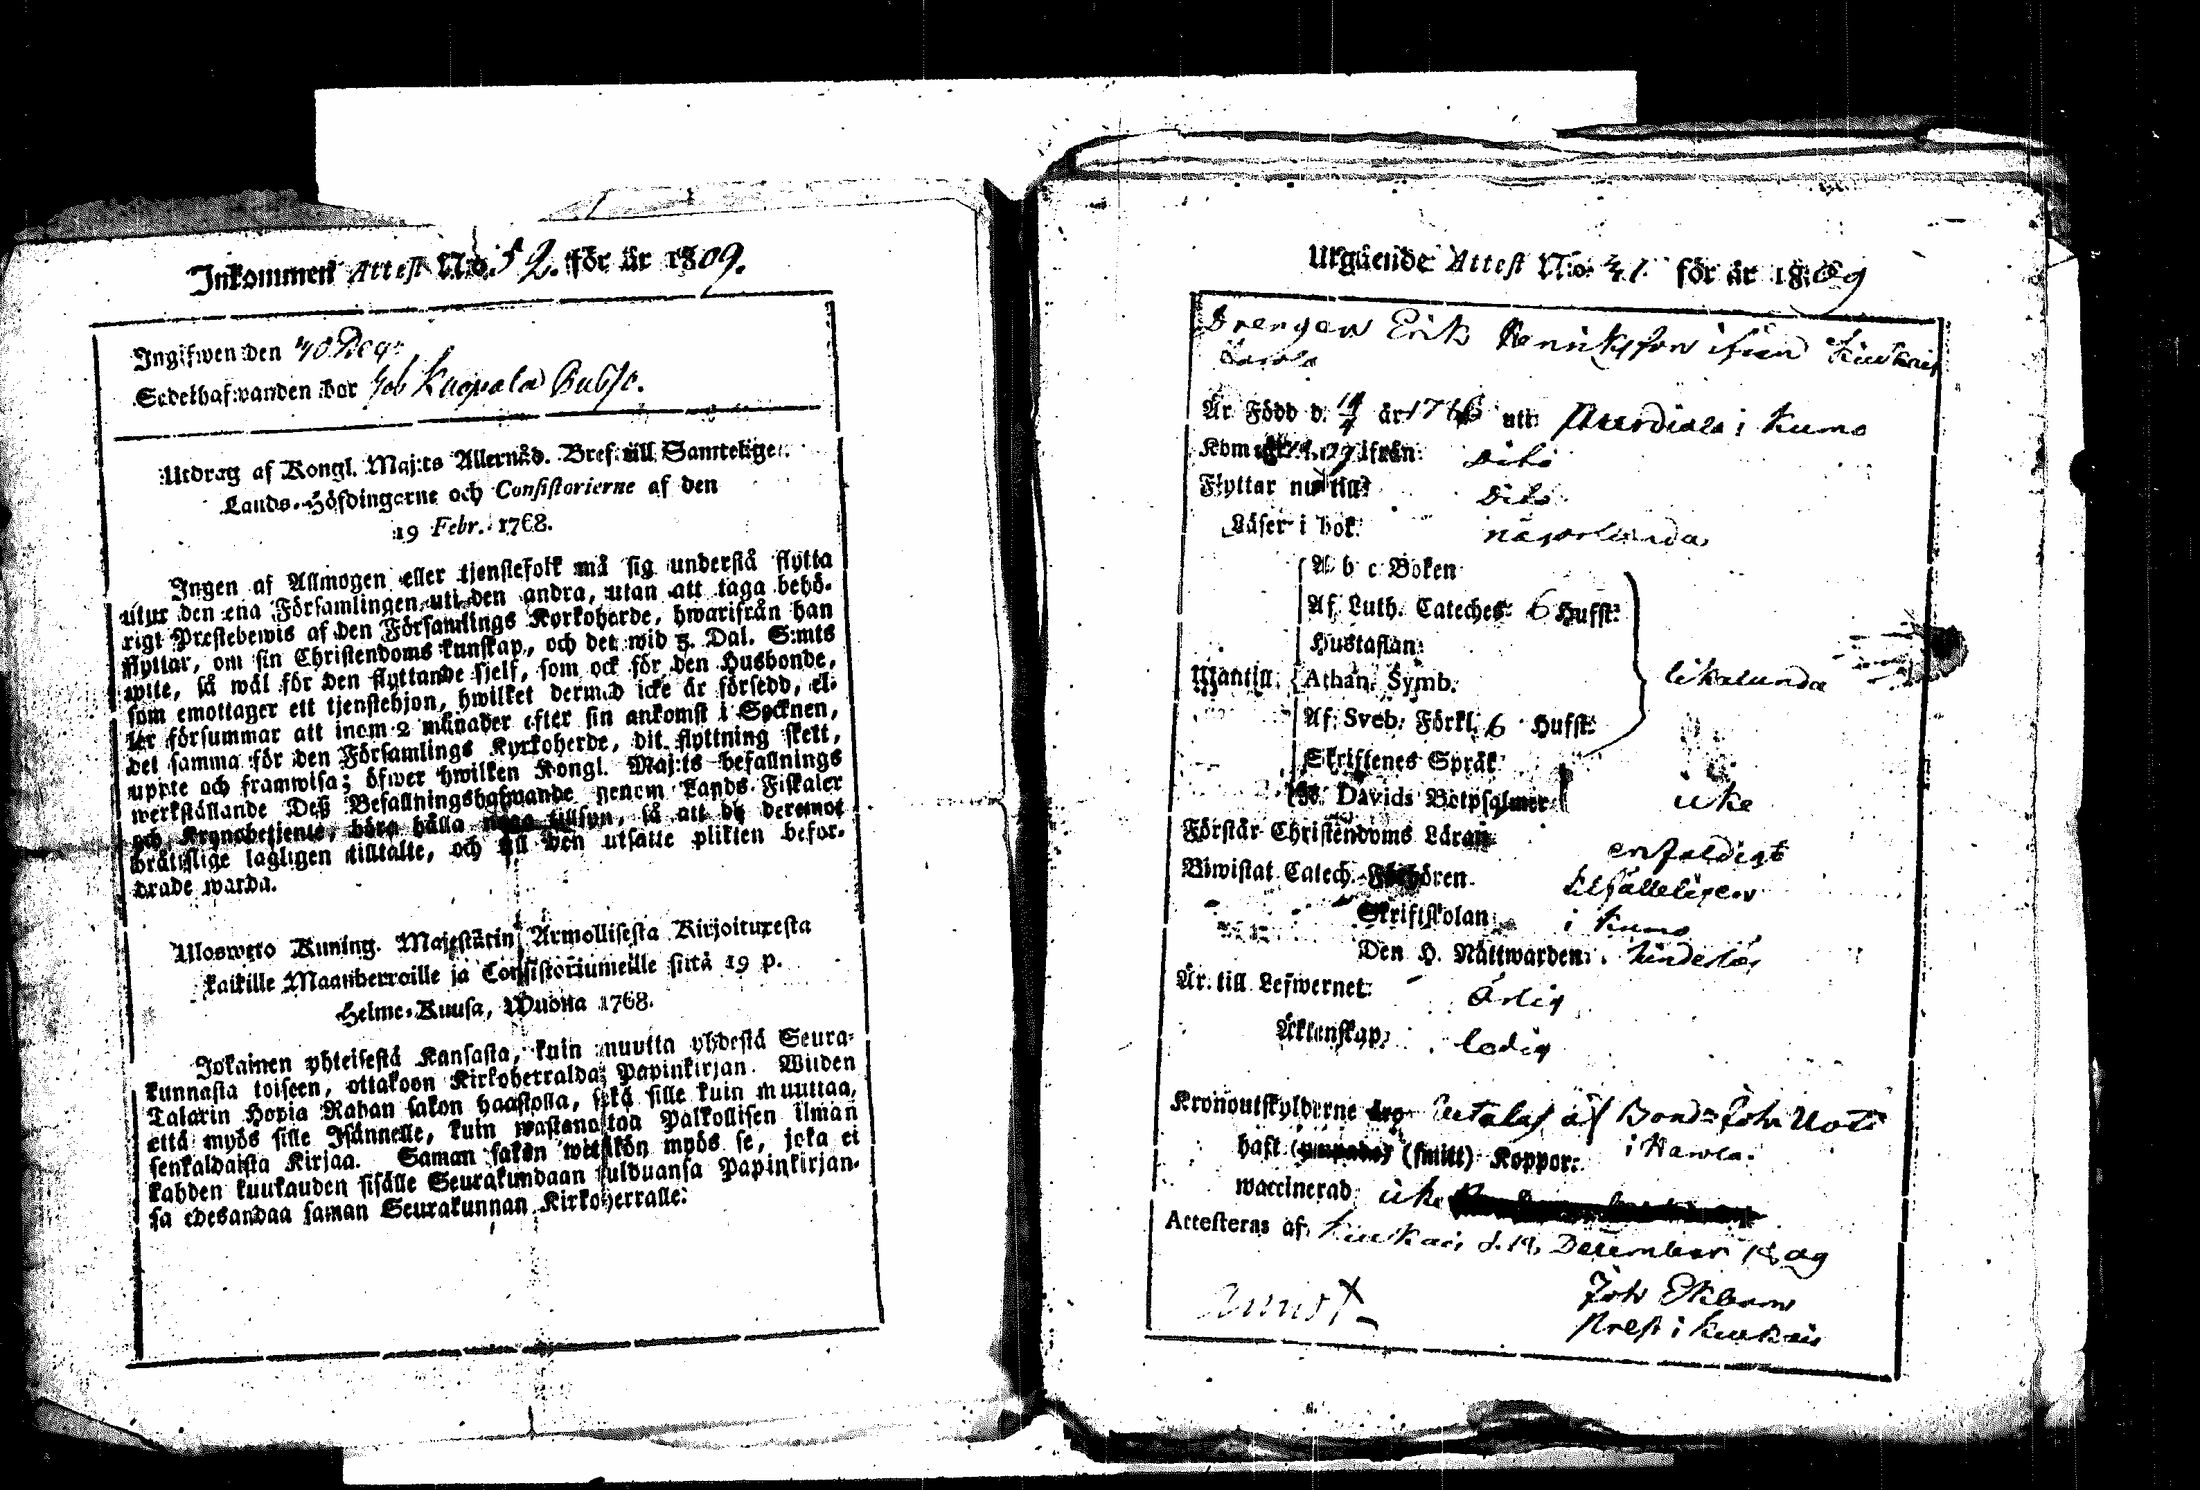 Inkommen Attest N:o 52. för år 1809.
Ingifwen den 30 Dec:r
Sedelhafwanden bor
Utdrag af Kongl. Maj:ts Allernåd. Bref till Samtelige
Lands-Höfdingarne och Consistorierne af den
19 Febr. 1768.
Ingen af Allmogen eller tjenstefolk må sig understå flytta
utur den ena Församlingen uti den andra, utan att taga behö-
rigt Prestebewis af den Församlings Kyrkoherde, hwarifrån han
flyttar, om sin Christendoms kunskap, och det wid 3. Dal. S:mts
wite, så wäl för den flyttande sjelf, som ock för den Husbonde,
som emottager ett tjenstehjon, hwilket dermed icke är försedd, el-
ler försummar att inom 2 månader efter sin ankomst i Socknen,
det samma för den Församlings Kyrkoherde, dit flyttning skett,
uppte och framwisa; öfwer hwilken Kongl. Maj:ts befallnings
werkställande Deß Befallningshafwande genom Lands-Fiskaler
och Kronobetjente, böra hålla noga tillsyn, så att de deremot
brättslige lagligen tilltalte, och till den utsatte plikten befor-
drade warda.
Uloswcto Kuning. Majestätin Armollisesta Kirjoituxesta
kaikille Maanherroille ja Consistoriumeille siitä 19 p.
Helme-Kuusa, Wuona 1768.
Jokainen yhteisestä Kansasta, kuin muutta yhdestä Seura-
kunnasta toiseen, ottakoon Kirkoherralda Papinkirjan. Wiiden
Talarin Hopia Rahan sakon haastolla, sekä sille kuin muuttaa,
että myös sille Isännelle, kuin wastanottaa Palkollisen ilman
senkaldaista Kirjaa. Saman sakon wetäkön myös se, joka ei
kahden kuukauden sisälle Seurakundaan tulduansa Papinkirjan-
sa edesandaa saman Seurakunnan Kirkoherralle.
Utgående Attest N:o för år 1809
Drengen Erik Henriksson ifrån Kiukais
Är Född d. år uti i Kumo
Kom ifrån: dito
Flyttar nu till: dito
Läser i bok: någorlunda
A b c Boken
Af Luth. Cateches: 6 Hufst:
Hustaflan:
Mantill. Athan. Symb. likalunda
Af Sveb. Förkl. 6 Hufst:
Skriftenes Språk
Davids Botpsalmer icke
Förstår Christendoms Läran enfaldigt
Biwistat Catech. Förhören tillfälleligen
Skriftskolan i Kumo
Den H. Nattwarden: lindeslös
Är till Lefwernet: ärlig
Äktenskap: ledig
Kronoutskylderne betalas af Bond: Joh: Uoti
haft (smitt) Koppor:
waccinerad icke
Attesteras af Kiukais d. 19 December 1809
Joh Ekbom
Prest i Kiukais